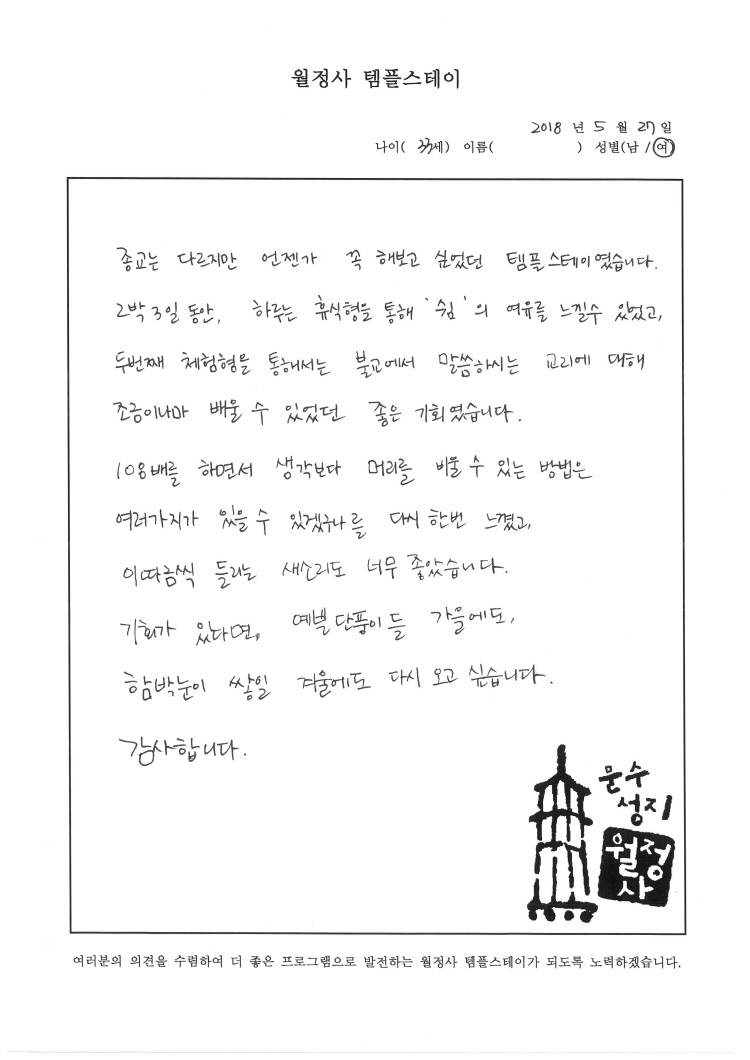 월정사 템플스테이
2018 년 5 월 27 일
나이( 33세) 이름( ) 성별(남 / 여)
종교는 다르지만 언젠가 꼭 해보고 싶었던 템플스테이였습니다.
2박 3일 동안, 하루는 휴식형을 통해 '쉼'의 여유를 느낄수 있었고,
두번째 체험형을 통해서는 불교에서 말씀하시는 교리에 대해
조금이나마 배울 수 있었던 좋은 기회였습니다.
108배를 하면서 생각보다 머리를 비울 수 있는 방법은
여러가지가 있을 수 있겠구나를 다시 한번 느꼈고,
이따금씩 들리는 새소리도 너무 좋았습니다.
기회가 있다면, 예쁠 단풍이 들 가을에도,
함박눈이 쌓일 겨울에도 다시 오고 싶습니다.
감사합니다.
문수
성지
월정
사
여러분의 의견을 수렴하여 더 좋은 프로그램으로 발전하는 월정사 템플스테이가 되도록 노력하겠습니다.